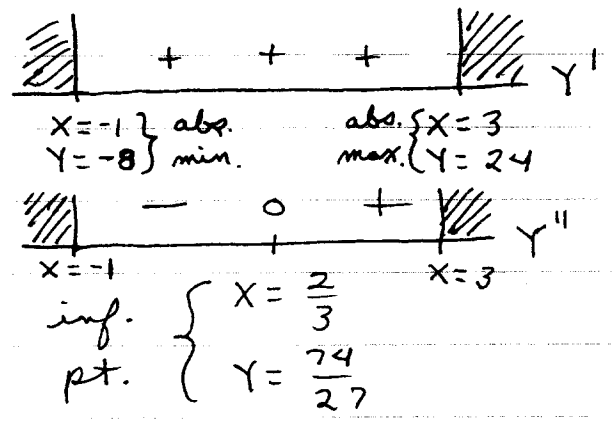 + + + Y'
X=-1 } abs. abs. { X=3
Y=-8 } min. max. { Y=24
— 0 + Y"
X=-1 X=3
inf. { X = 2/3
pt. { Y = 74/27